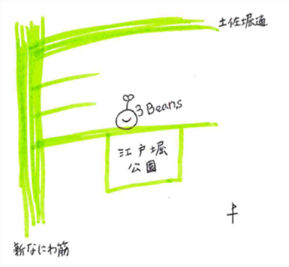 土佐堀通
3 Beans
江戸堀
公園
新なにわ筋